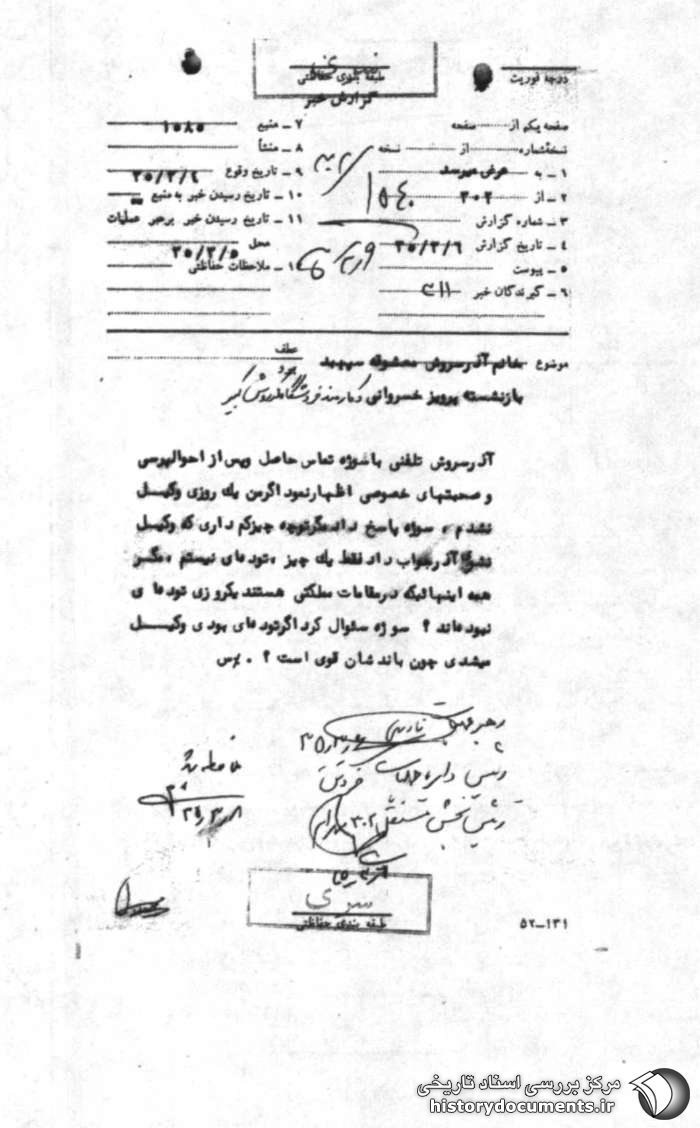 درجه فوریت
طبقه بندی حفاظتی
گزارش خبر
صفحه یکم از صفحه
نسخه شماره از نسخه
۱ ـ به عرض میرسد
۲ ـ از ۳۰۲
۳ ـ شماره گزارش
۴ ـ تاریخ گزارش ۳۵/۳/۶
۵ ـ پیوست
۶ ـ گیرندگان خبر
۷ ـ منبع ۱۰۸۵
۸ ـ منشأ
۹ ـ تاریخ وقوع ۳۵/۳/۶
۱۰ ـ تاریخ رسیدن خبر به منبع
۱۱ ـ تاریخ رسیدن خبر برهبر عملیات
محل ۳۵/۳/۵
۱ ـ ملاحظات حفاظتی
عطف
موضوع خانم آذرسروش معشوقه سپهبد
بازنشسته پرویز خسروانی
آذرسروش تلفنی با سوژه تماس حاصل وپس از احوالپرسی
و صحبتهای خصوصی اظهارنمود اگرمن یك روزی وکیـل
نشدم ، سوژه پاسخ داد مگرتوچه چیزکم داری که وکیـل
نشوی آذرجواب داد فقط یك چیز ، تودهای نیستم ، مگـر
همه اینهائیکه درمقامات مملکتی هستند یکروزی تودهای
نبودهاند ؟ سوژه سئوال کرد اگرتودهای بودی وکیـل
میشدی چون باندشان قوی است ؟ . پرس
رهبر عملیات
رئیس دایره عملیات
رئیس بخش مستقل ۳۰۲
سری
طبقه بندی حفاظتی
۵۲ــ۱۳۱
مرکز بررسی اسناد تاریخی
historydocuments.ir